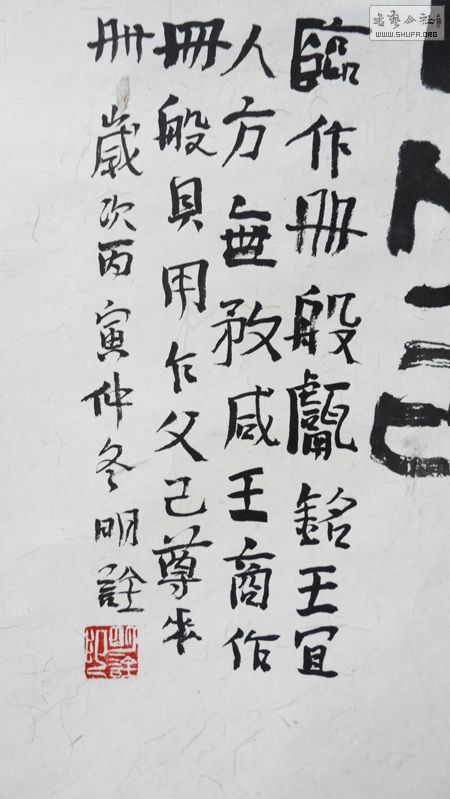 臨作冊般甗銘王宜
人方無敄咸王商作
冊般貝用乍父己尊来
冊 歲次丙寅仲冬明詮
書藝公社
WWW.SHUFA.ORG